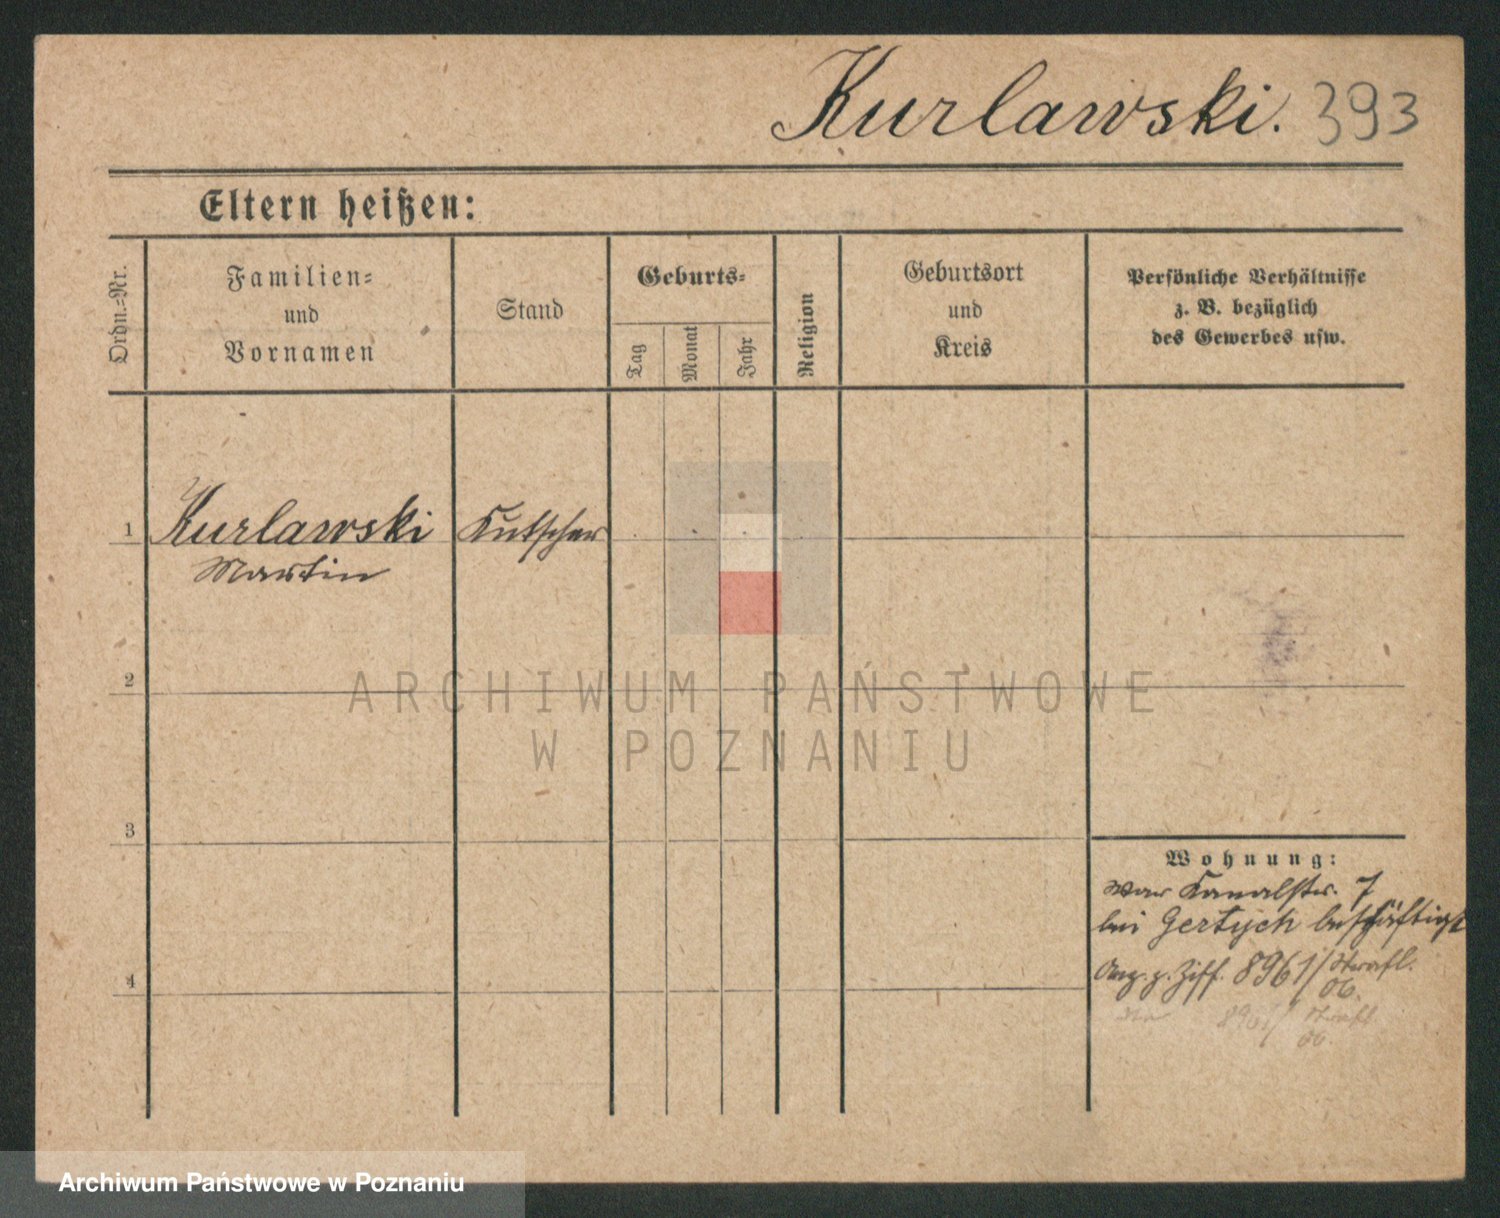 Kurlawski. 393
Eltern heißen:
Ordn.-Nr.
Familien-
und
Vornamen
Stand
Geburts-
Tag
Monat
Jahr
Religion
Geburtsort
und
Kreis
Persönliche Verhältnisse
z. B. bezüglich
des Gewerbes usw.
1 Kurlawski Kutscher
Martin
2
ARCHIWUM PAŃSTWOWE
W POZNANIU
3
Wohnung:
war Kanalstr. 7
bei Gertych beschäftigt
4
Ang. z. Ziff. 8961/
06.
8961/
06.
Archiwum Państwowe w Poznaniu